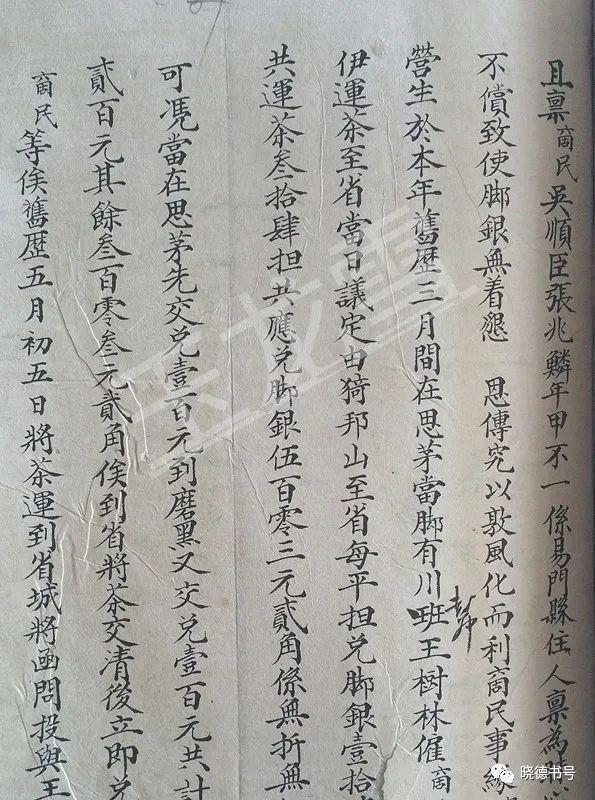 具稟商民吳順臣張兆鱗年甲不一係易門縣住人稟為
不償致使脚銀無着懇 恩傳究以敦風化而利商民事緣
營生於本年舊歷三月間在思茅當脚有川班幇王樹林僱商
伊運茶至省當日議定由猗邦山至省每平担兑脚銀壹拾
共運茶叁拾肆担共應兑脚銀伍百零三元貳角係無折無
可馮當在思茅先交兑壹百元到磨黑又交兑壹百元共計
貳百元其餘叁百零叁元貳角俟到省將茶交清後立即兑
商民等俟舊歷五月初五日將茶運到省城將函問投與王
玉龙雪
晓德书号